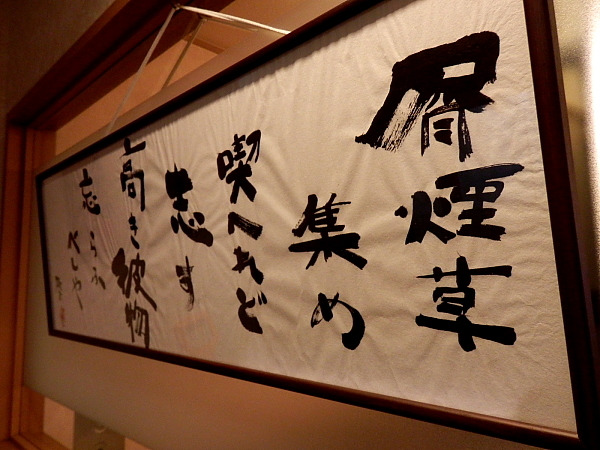 屑煙草
集め
喫へれど
志す
高き彼物
忘らふ
べしや